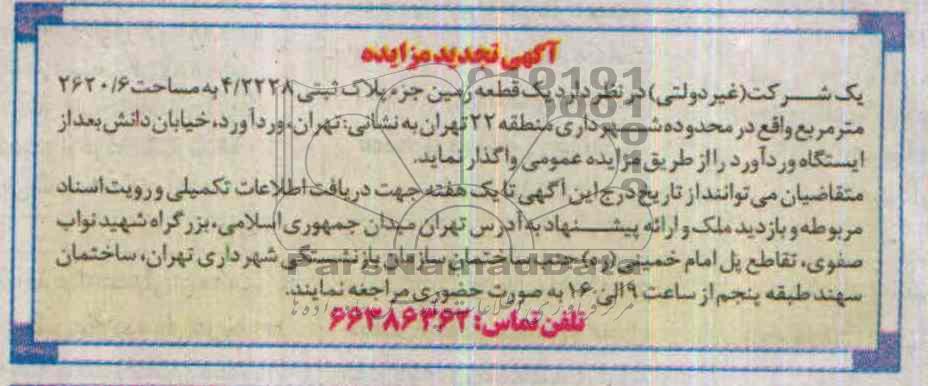 آگهی تجدید مزایده
یک شرکت (غیر دولتی) در نظر دارد یک قطعه زمین جزء پلاک ثبتی ۴/۲۲۲۸ به مساحت ۲۶۲۰/۶
متر مربع واقع در محدوده شهرداری منطقه ۲۲ تهران به نشانی: تهران، وردآورد، خیابان دانش بعد از
ایستگاه وردآورد را از طریق مزایده عمومی واگذار نماید.
متقاضیان می توانند از تاریخ درج این آگهی تا یک هفته جهت دریافت اطلاعات تکمیلی و رویت اسناد
مربوطه و بازدید ملک و ارائه پیشنهاد به آدرس تهران میدان جمهوری اسلامی، بزرگراه شهید نواب
صفوی، تقاطع پل امام خمینی (ره) جنب ساختمان سازمان بازنشستگی شهرداری تهران، ساختمان
سهند طبقه پنجم از ساعت ۹ الی ۱۶ به صورت حضوری مراجعه نمایند.
تلفن تماس: ۶۶۳۸۶۳۶۲
ParsNamadData